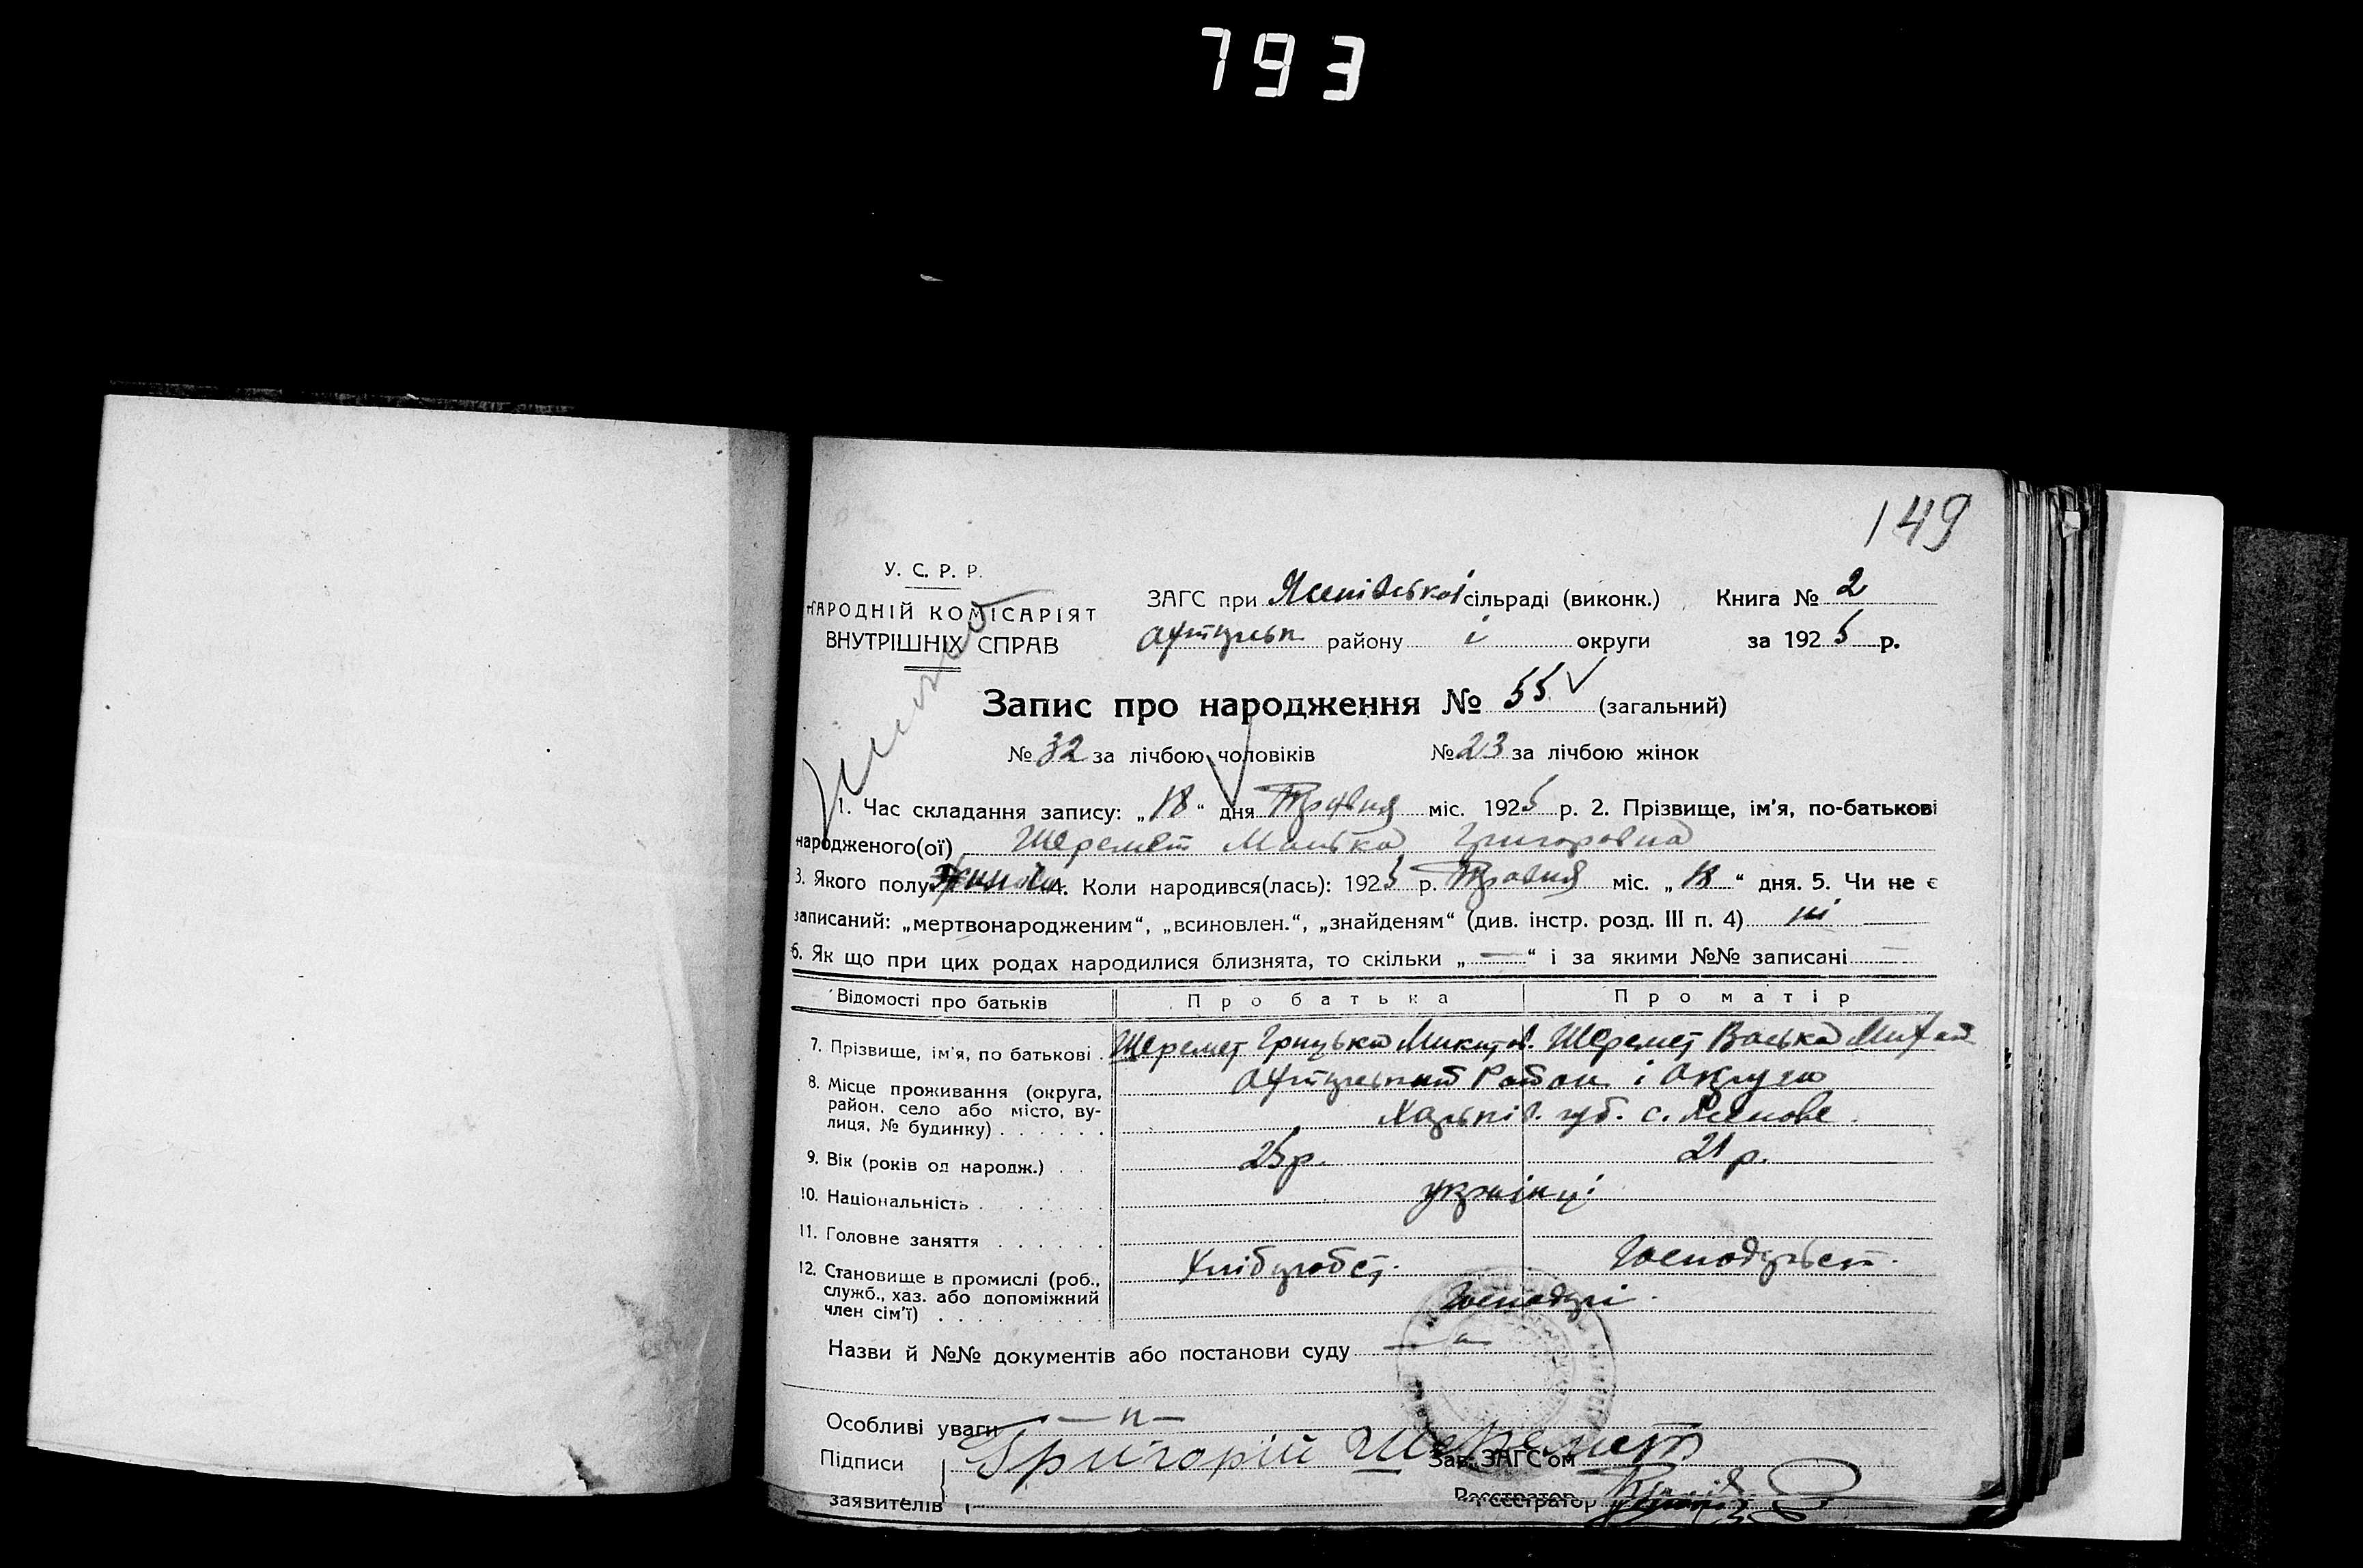 793
149
У. С. Р. Р.
НАРОДНІЙ КОМІСАРІЯТ
ВНУТРІШНІХ СПРАВ
ЗАГС при Ясенівської сільраді (виконк.) Книга № 2
району і округи за 1925 р.
Запис про народження № 55 (загальний)
№ 32 за лічбою чоловіків № 23 за лічбою жінок
1. Час складання запису: „18“ дня Травня міс. 1925 р. 2. Прізвище, ім'я, по-батькові
народженого(ої) Шеремет Григоровна
3. Якого полу 4. Коли народився(лась): 1925 р. Травня міс. „18“ дня. 5. Чи не є
записаний: „мертвонародженим“, „всиновлен.“, „знайденям“ (див. інстр. розд. III п. 4) ні
6. Як що при цих родах народилися близнята, то скільки „—“ і за якими №№ записані —
Відомості про батьків Про батька Про матір
7. Прізвище, ім'я, по батькові . Шеремет Грицько Микитов. Шеремет Васька
8. Місце проживання (округа, район, село або місто, вулиця, № будинку) . . . . . . Район і Округа
Харьків. губ. с. Ясенове.
9. Вік (років од народж.) . . 25 р. 21 р.
10. Національність . . . . . українці
11. Головне заняття . . . . . . Хлібуробст. Господарьст.
12. Становище в промислі (роб., служб., хаз. або допоміжний член сім'ї) . . . . . . . . . Господарі.
Назви й №№ документів або постанови суду
Особливі уваги — „ —
Підписи Григорій Шеремет Зав. ЗАГС'ом
заявителів Реєстратор